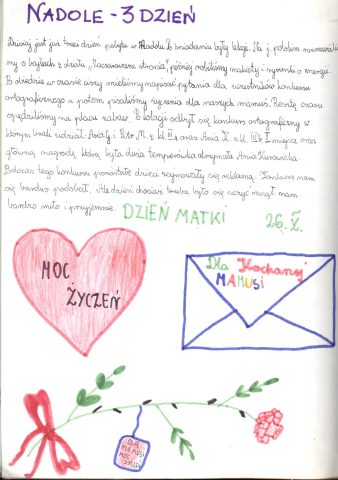 NADOLE - 3 DZIEŃ
Dzisiaj jest już trzeci dzień pobytu w Nadolu. Po śniadaniu były lekcje. Na j. polskim rozmawialiś-
my o bajkach z działu „Zaczarowane stronice", później robiliśmy makiety i rysunki o
Po obiedzie w czasie ciszy mieliśmy napisać pytania dla uczestników konkursu
ortograficznego a potem pisaliśmy życzenia dla naszych mamuś. Resztę czasu
spędziliśmy na placu zabaw. Po kolacji odbył się konkurs ortograficzny w
którym brali udział: M. z kl. II a oraz Ania K. z kl. III I miejsce oraz
główną nagrodę, którą była duża temperówka otrzymała Ania
Podczas tego konkursu pozostałe dzieci zajmowały się reklamą. Konkurs nam
się bardzo podobał. Ale dzień chociaż trzeba było się uczyć minął nam
bardzo miło i przyjemnie.
DZIEŃ MATKI 26.V.
MOC
ŻYCZEŃ
Dla Kochanej
MAMUSI
DLA
MAMUSI
MOC
ŻYCZEŃ